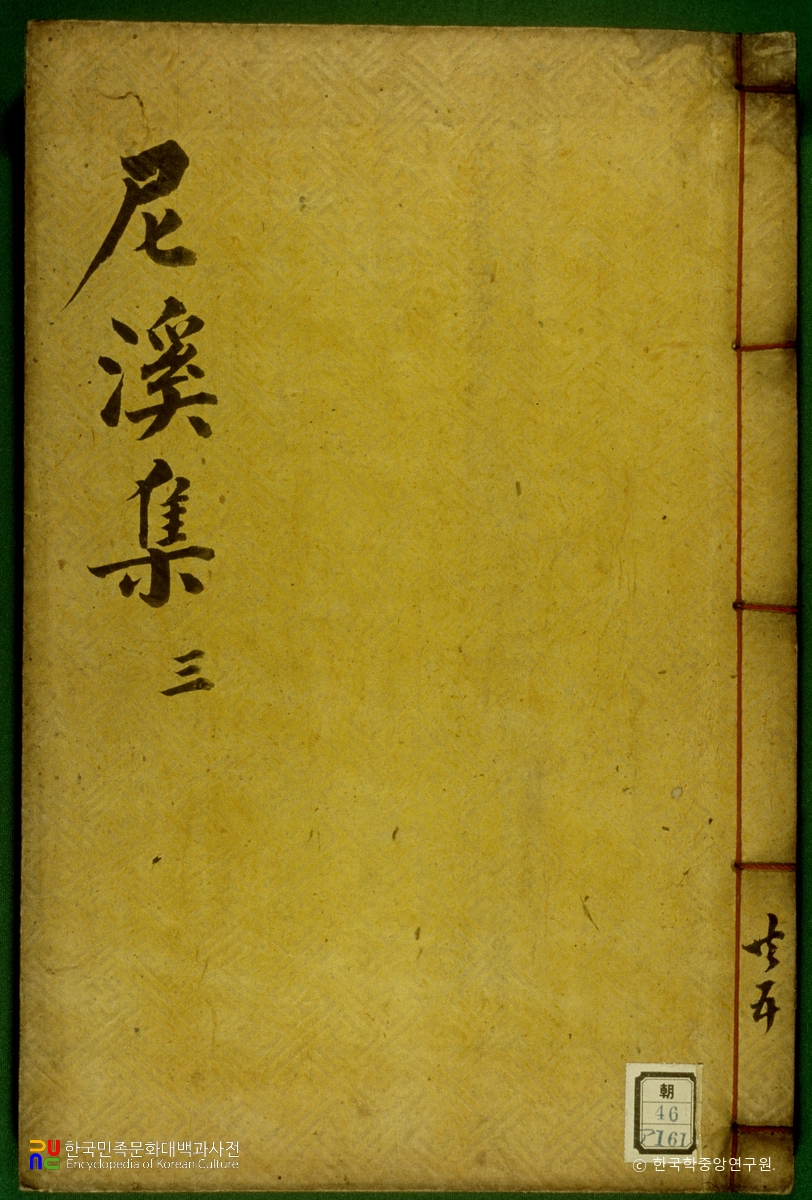 尼溪集 三
共五
朝
46
ア161
한국민족문화대백과사전
Encyclopedia of Korean Culture
© 한국학중앙연구원.